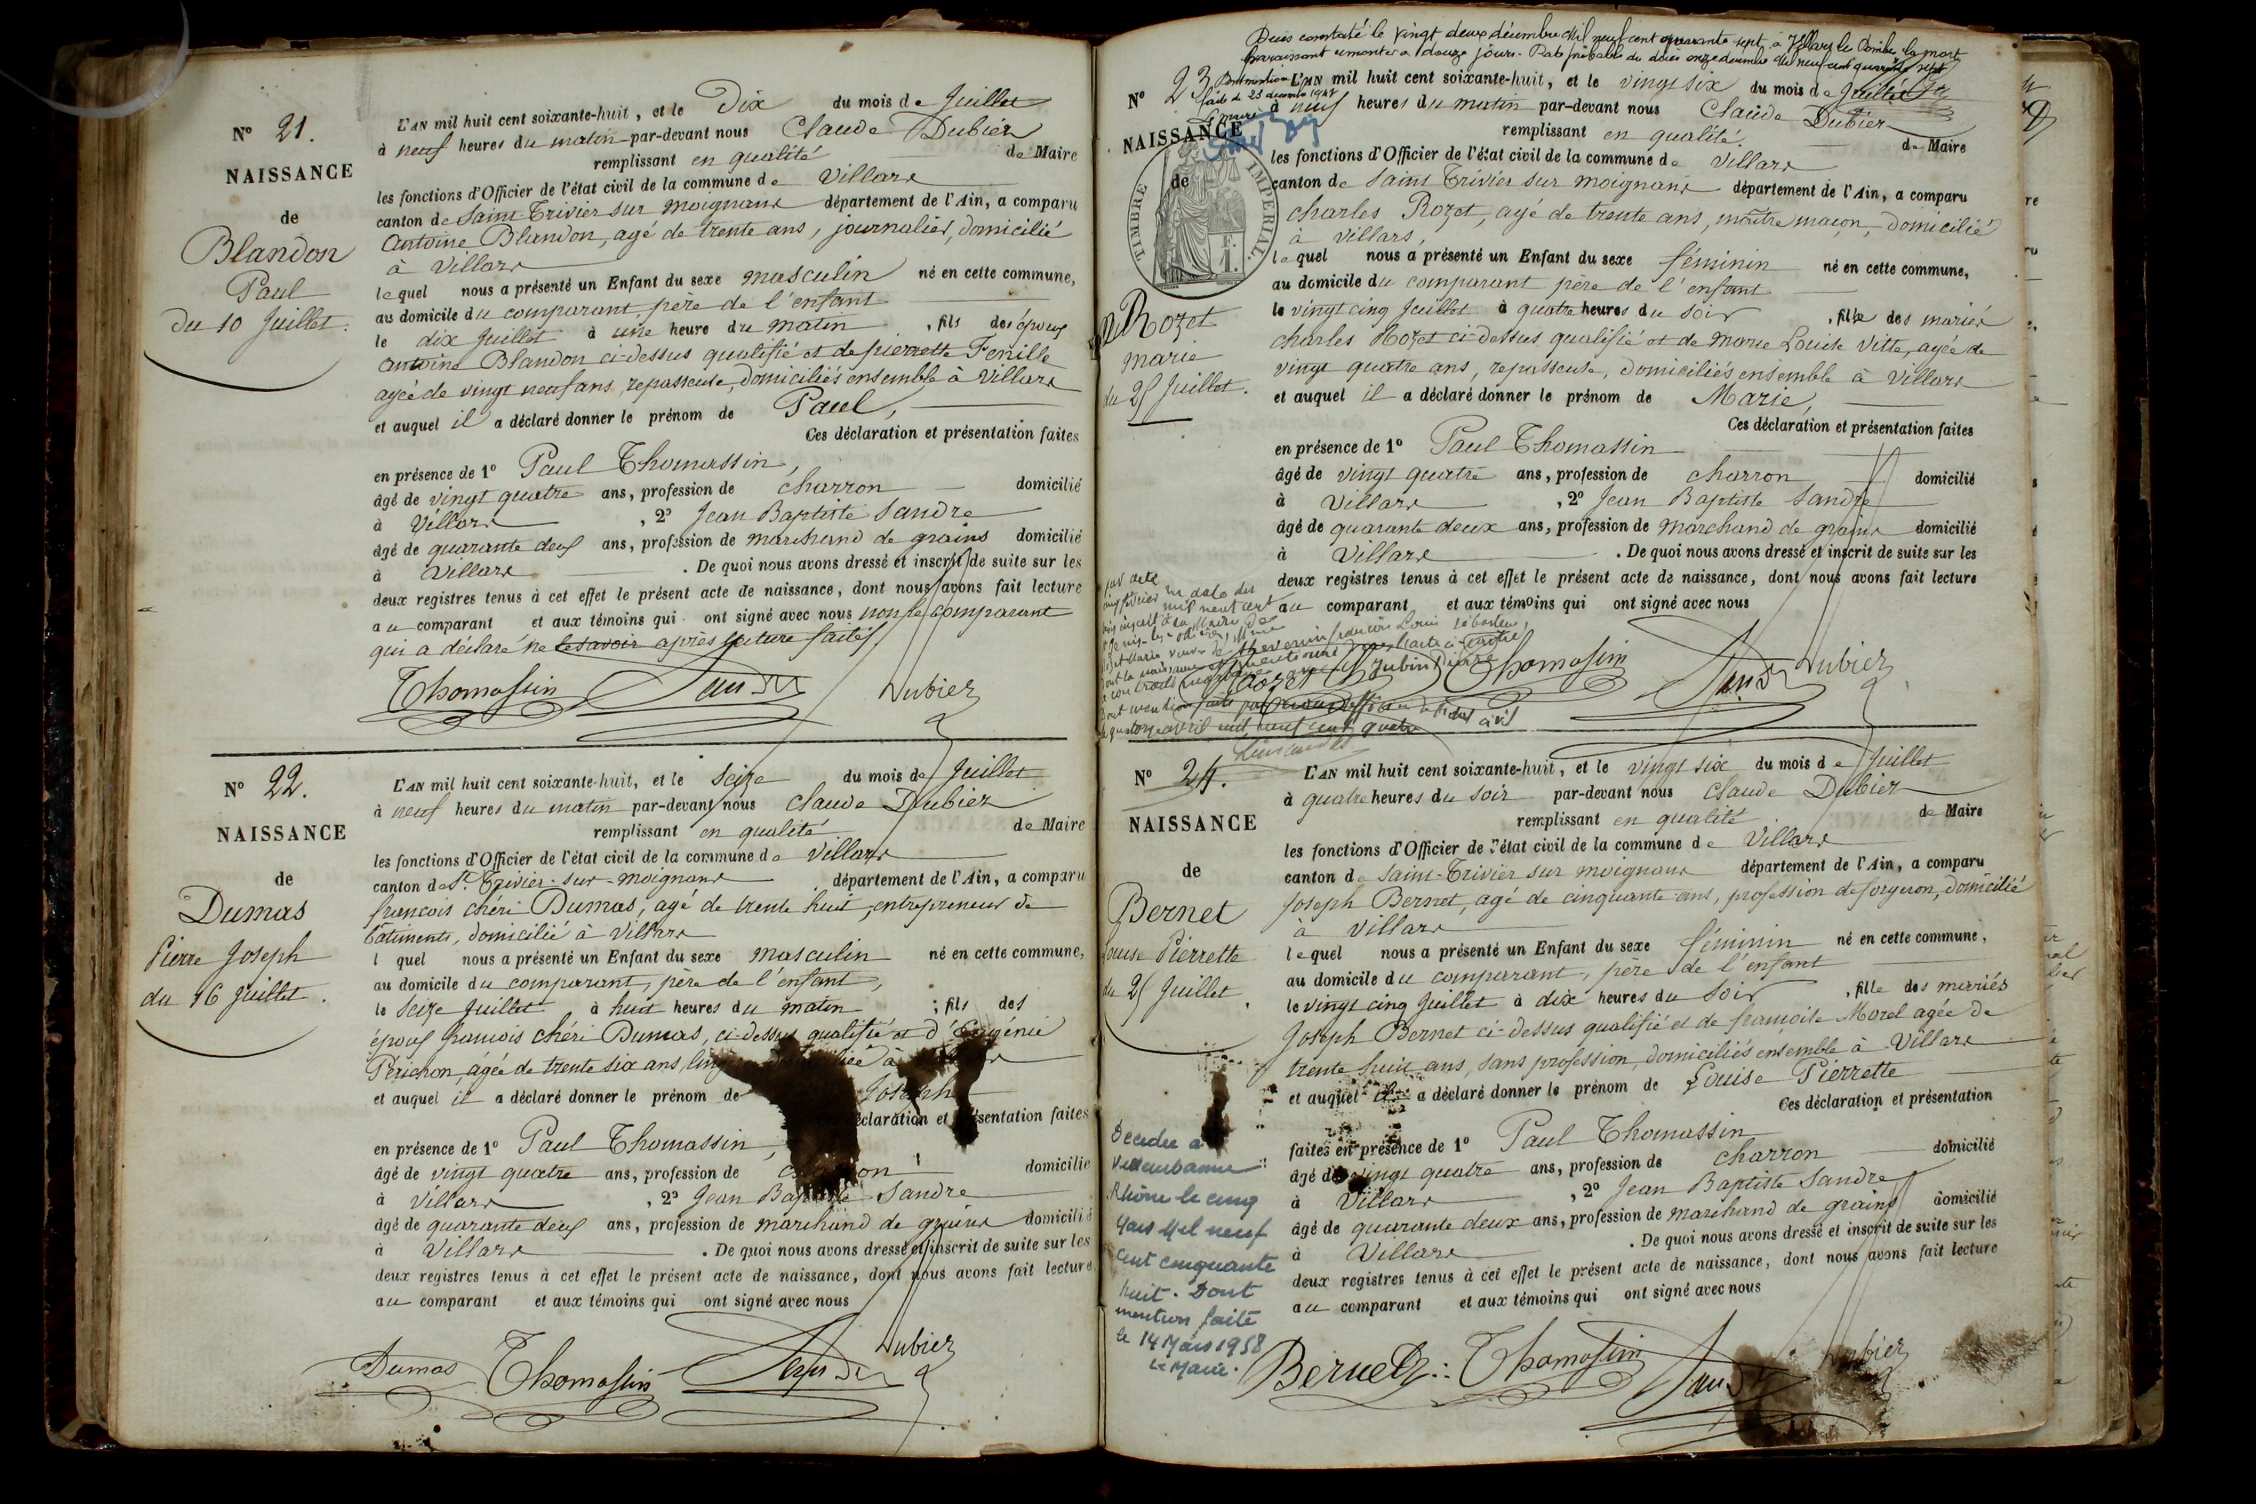 N° 21.
NAISSANCE
de
Blandon
Paul
du 10 Juillet.
L'AN mil huit cent soixante-huit, et le Dix du mois de Juillet
à neuf heures du matin par-devant nous Claude Dubiez
remplissant en qualité de Maire
les fonctions d'Officier de l'état civil de la commune de Villars
canton de Saint Trivier sur moignans département de l'Ain, a comparu
Antoine Blandon, agé de trente ans, journalier, domicilié
à Villars
lequel nous a présenté un Enfant du sexe masculin né en cette commune,
au domicile du comparant, père de l'enfant
le dix Juillet à une heure du matin, fils des époux
Antoine Blandon ci-dessus qualifié et de pierrette Fenille
agée de vingt neuf ans, repasseuse, domiciliés ensemble à Villars
et auquel il a déclaré donner le prénom de Paul,
Ces déclaration et présentation faites
en présence de 1° Paul Thomassin,
âgé de vingt quatre ans, profession de charron domicilié
à Villars, 2° Jean Baptiste Sandre
âgé de quarante deux ans, profession de marchand de grains domicilié
à Villars. De quoi nous avons dressé et inscrit de suite sur les
deux registres tenus à cet effet le présent acte de naissance, dont nous avons fait lecture
au comparant et aux témoins qui ont signé avec nous non le comparant
qui a déclaré ne le savoir après lecture faite.
Thomassin Sandre Dubiez
N° 22.
NAISSANCE
de
Dumas
Pierre Joseph
du 16 Juillet.
L'AN mil huit cent soixante-huit, et le Seize du mois de Juillet
à neuf heures du matin par-devant nous Claude Dubiez
remplissant en qualité de Maire
les fonctions d'Officier de l'état civil de la commune de Villars
canton de St. Trivier-sur-moignans département de l'Ain, a comparu
françois chéri Dumas, agé de trente huit, entrepreneur de
batiments, domicilié à Villars
l quel nous a présenté un Enfant du sexe masculin né en cette commune,
au domicile du comparant, père de l'enfant,
le Seize Juillet à huit heures du matin; fils des
époux françois chéri Dumas, ci-dessus qualifié et d'Eugénie
Perichon, âgée de trente six ans,
et auquel il a déclaré donner le prénom de Joseph
éclaration et présentation faites
en présence de 1° Paul Thomassin,
âgé de vingt quatre ans, profession de charron domicilié
à Villars, 2° Jean Baptiste Sandre
âgé de quarante deux ans, profession de marchand de grains domicilié
à Villars. De quoi nous avons dressé et inscrit de suite sur les
deux registres tenus à cet effet le présent acte de naissance, dont nous avons fait lecture
au comparant et aux témoins qui ont signé avec nous
Dumas Thomassin Sandre Dubiez
Décès constaté le vingt deux décembre Mil neuf cent quarante sept à Villars les Dombes la mort
paraissant remonter à douze jours. Date probable du décès onze décembre mil neuf cent quarante sept
N° 23
mention
faite le 23 décembre 1947
Le maire
NAISSANCE
de
TIMBRE IMPERIAL
1 F.
Rozet
marie
du 25 Juillet.
L'AN mil huit cent soixante-huit, et le vingt six du mois de Juillet
à neuf heures du matin par-devant nous Claude Dubiez
remplissant en qualité de Maire
les fonctions d'Officier de l'état civil de la commune de Villars
canton de Saint Trivier sur moignans département de l'Ain, a comparu
Charles Rozet, agé de trente ans, maître maçon, domicilié
à Villars,
lequel nous a présenté un Enfant du sexe féminin né en cette commune,
au domicile du comparant père de l'enfant
le vingt cinq Juillet à quatre heures du soir, fille des mariés
charles Rozet ci-dessus qualifié et de marie Louise Vitte, agée de
vingt quatre ans, repasseuse, domiciliés ensemble à Villars
et auquel il a déclaré donner le prénom de Marie,
Ces déclaration et présentation faites
en présence de 1° Paul Thomassin
âgé de vingt quatre ans, profession de charron domicilié
à Villars, 2° Jean Baptiste Sandre
âgé de quarante deux ans, profession de marchand de grains domicilié
à Villars. De quoi nous avons dressé et inscrit de suite sur les
deux registres tenus à cet effet le présent acte de naissance, dont nous avons fait lecture
au comparant et aux témoins qui ont signé avec nous
par acte
en date du
mil neuf cent
Marie veuve de Thevenin
dont la naissance
a contracté mariage avec Jubin Pierre
dont mention faite par
quatorze avril mil neuf cent quatre
Rozet Ch Thomassin Sandre Dubiez
N° 24.
NAISSANCE
de
Bernet
Louise Pierrette
du 25 Juillet.
L'AN mil huit cent soixante-huit, et le vingt six du mois de Juillet
à quatre heures du soir par-devant nous Claude Dubiez
remplissant en qualité de Maire
les fonctions d'Officier de l'état civil de la commune de Villars
canton de Saint-Trivier sur moignans département de l'Ain, a comparu
Joseph Bernet, agé de cinquante ans, profession de forgeron, domicilié
à Villars
lequel nous a présenté un Enfant du sexe féminin né en cette commune,
au domicile du comparant, père de l'enfant
le vingt cinq Juillet à dix heures du soir, fille des mariés
Joseph Bernet ci-dessus qualifié et de françoise Morel agée de
trente huit ans, sans profession, domiciliés ensemble à Villars
et auquel il a déclaré donner le prénom de Louise Pierrette
Ces déclaration et présentation
faites en présence de 1° Paul Thomassin
âgé de vingt quatre ans, profession de charron domicilié
à Villars, 2° Jean Baptiste Sandre
âgé de quarante deux ans, profession de marchand de grains domicilié
à Villars. De quoi nous avons dressé et inscrit de suite sur les
deux registres tenus à cet effet le présent acte de naissance, dont nous avons fait lecture
au comparant et aux témoins qui ont signé avec nous
Décédée à
Villeurbanne
Rhône le cinq
Mars Mil neuf
cent cinquante
huit. Dont
mention faite
le 14 Mars 1958
Le Maire.
Bernet Thomassin Sandre Dubiez